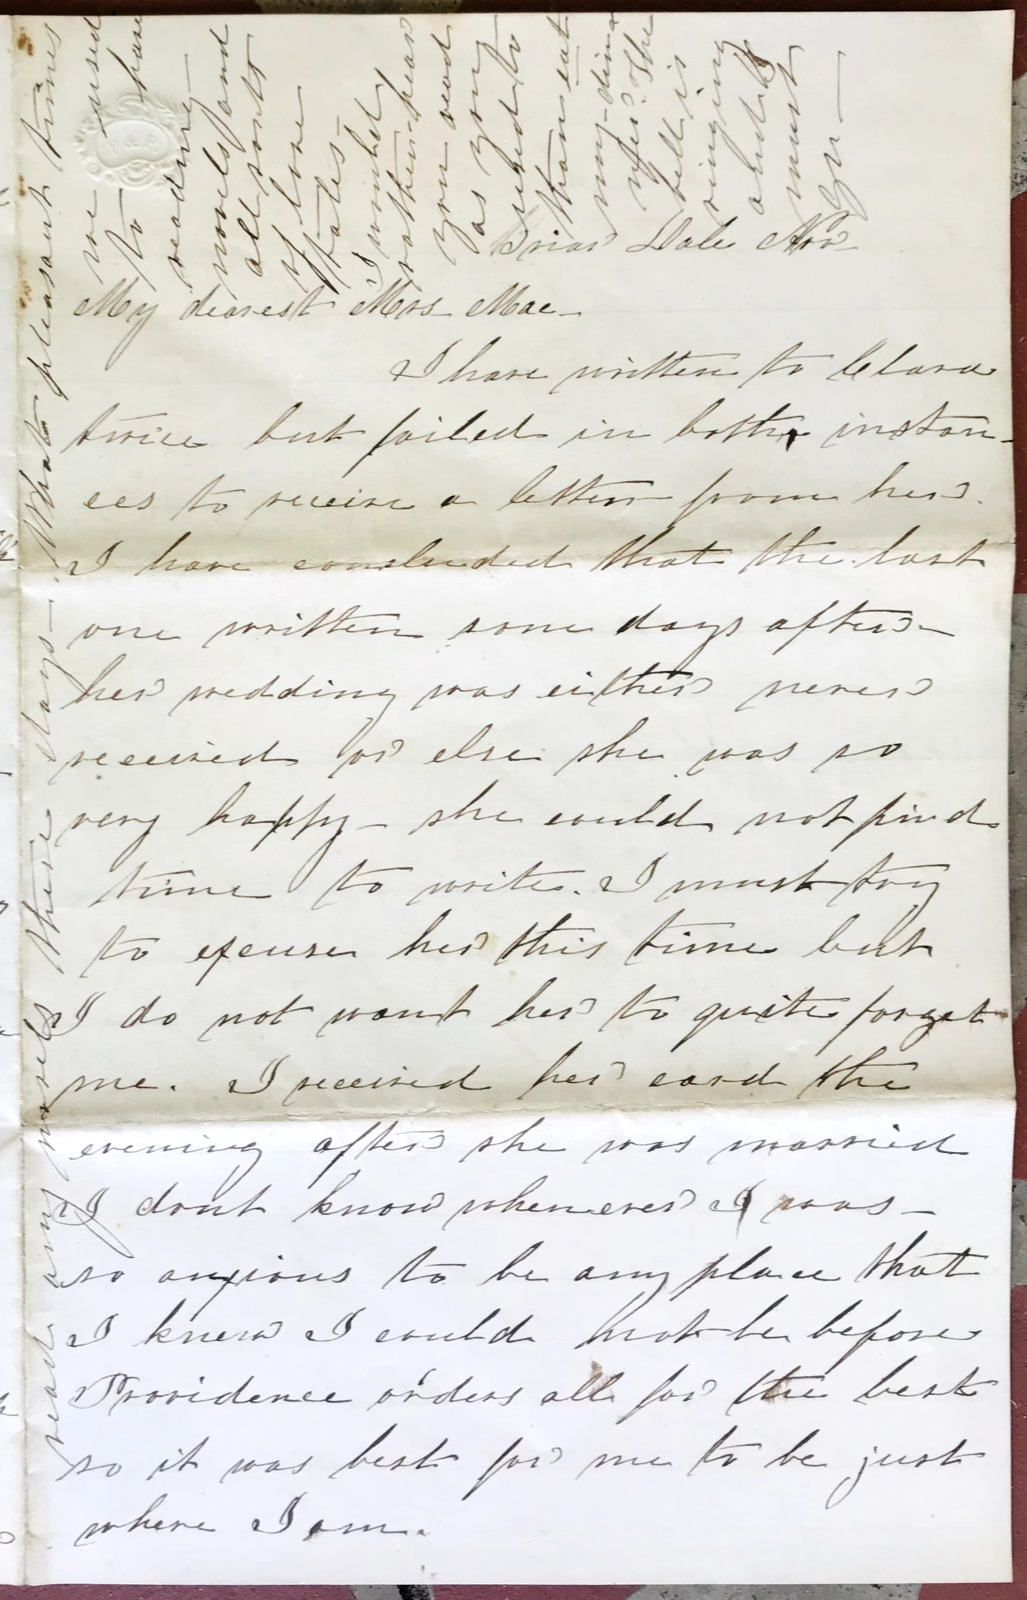 Briar Dale Nov
My dearest Mrs Mac-
I have written to Clara
twice but failed in both instan-
ces to receive a letter from her.
I have concluded that the last
one written some days after-
her wedding was either never
received or else she was so
very happy- she could not find
time to write. I must try
to excuse her this time but
I do not want her to quite forget
me. I received her card the
evening after she was married
I dont know whenever I was-
so anxious to be any place that
I knew I could not be before
Providence orders all for the best
so it was best for me to be just
where I am.
read any novels these days- What pleasant times
we used
to have
reading
novels and
all sorts
of love
tales-
I would
rather hear
you read
as you
used to
than eat
my dinner
The
bell is
ringing
and I
must
go-